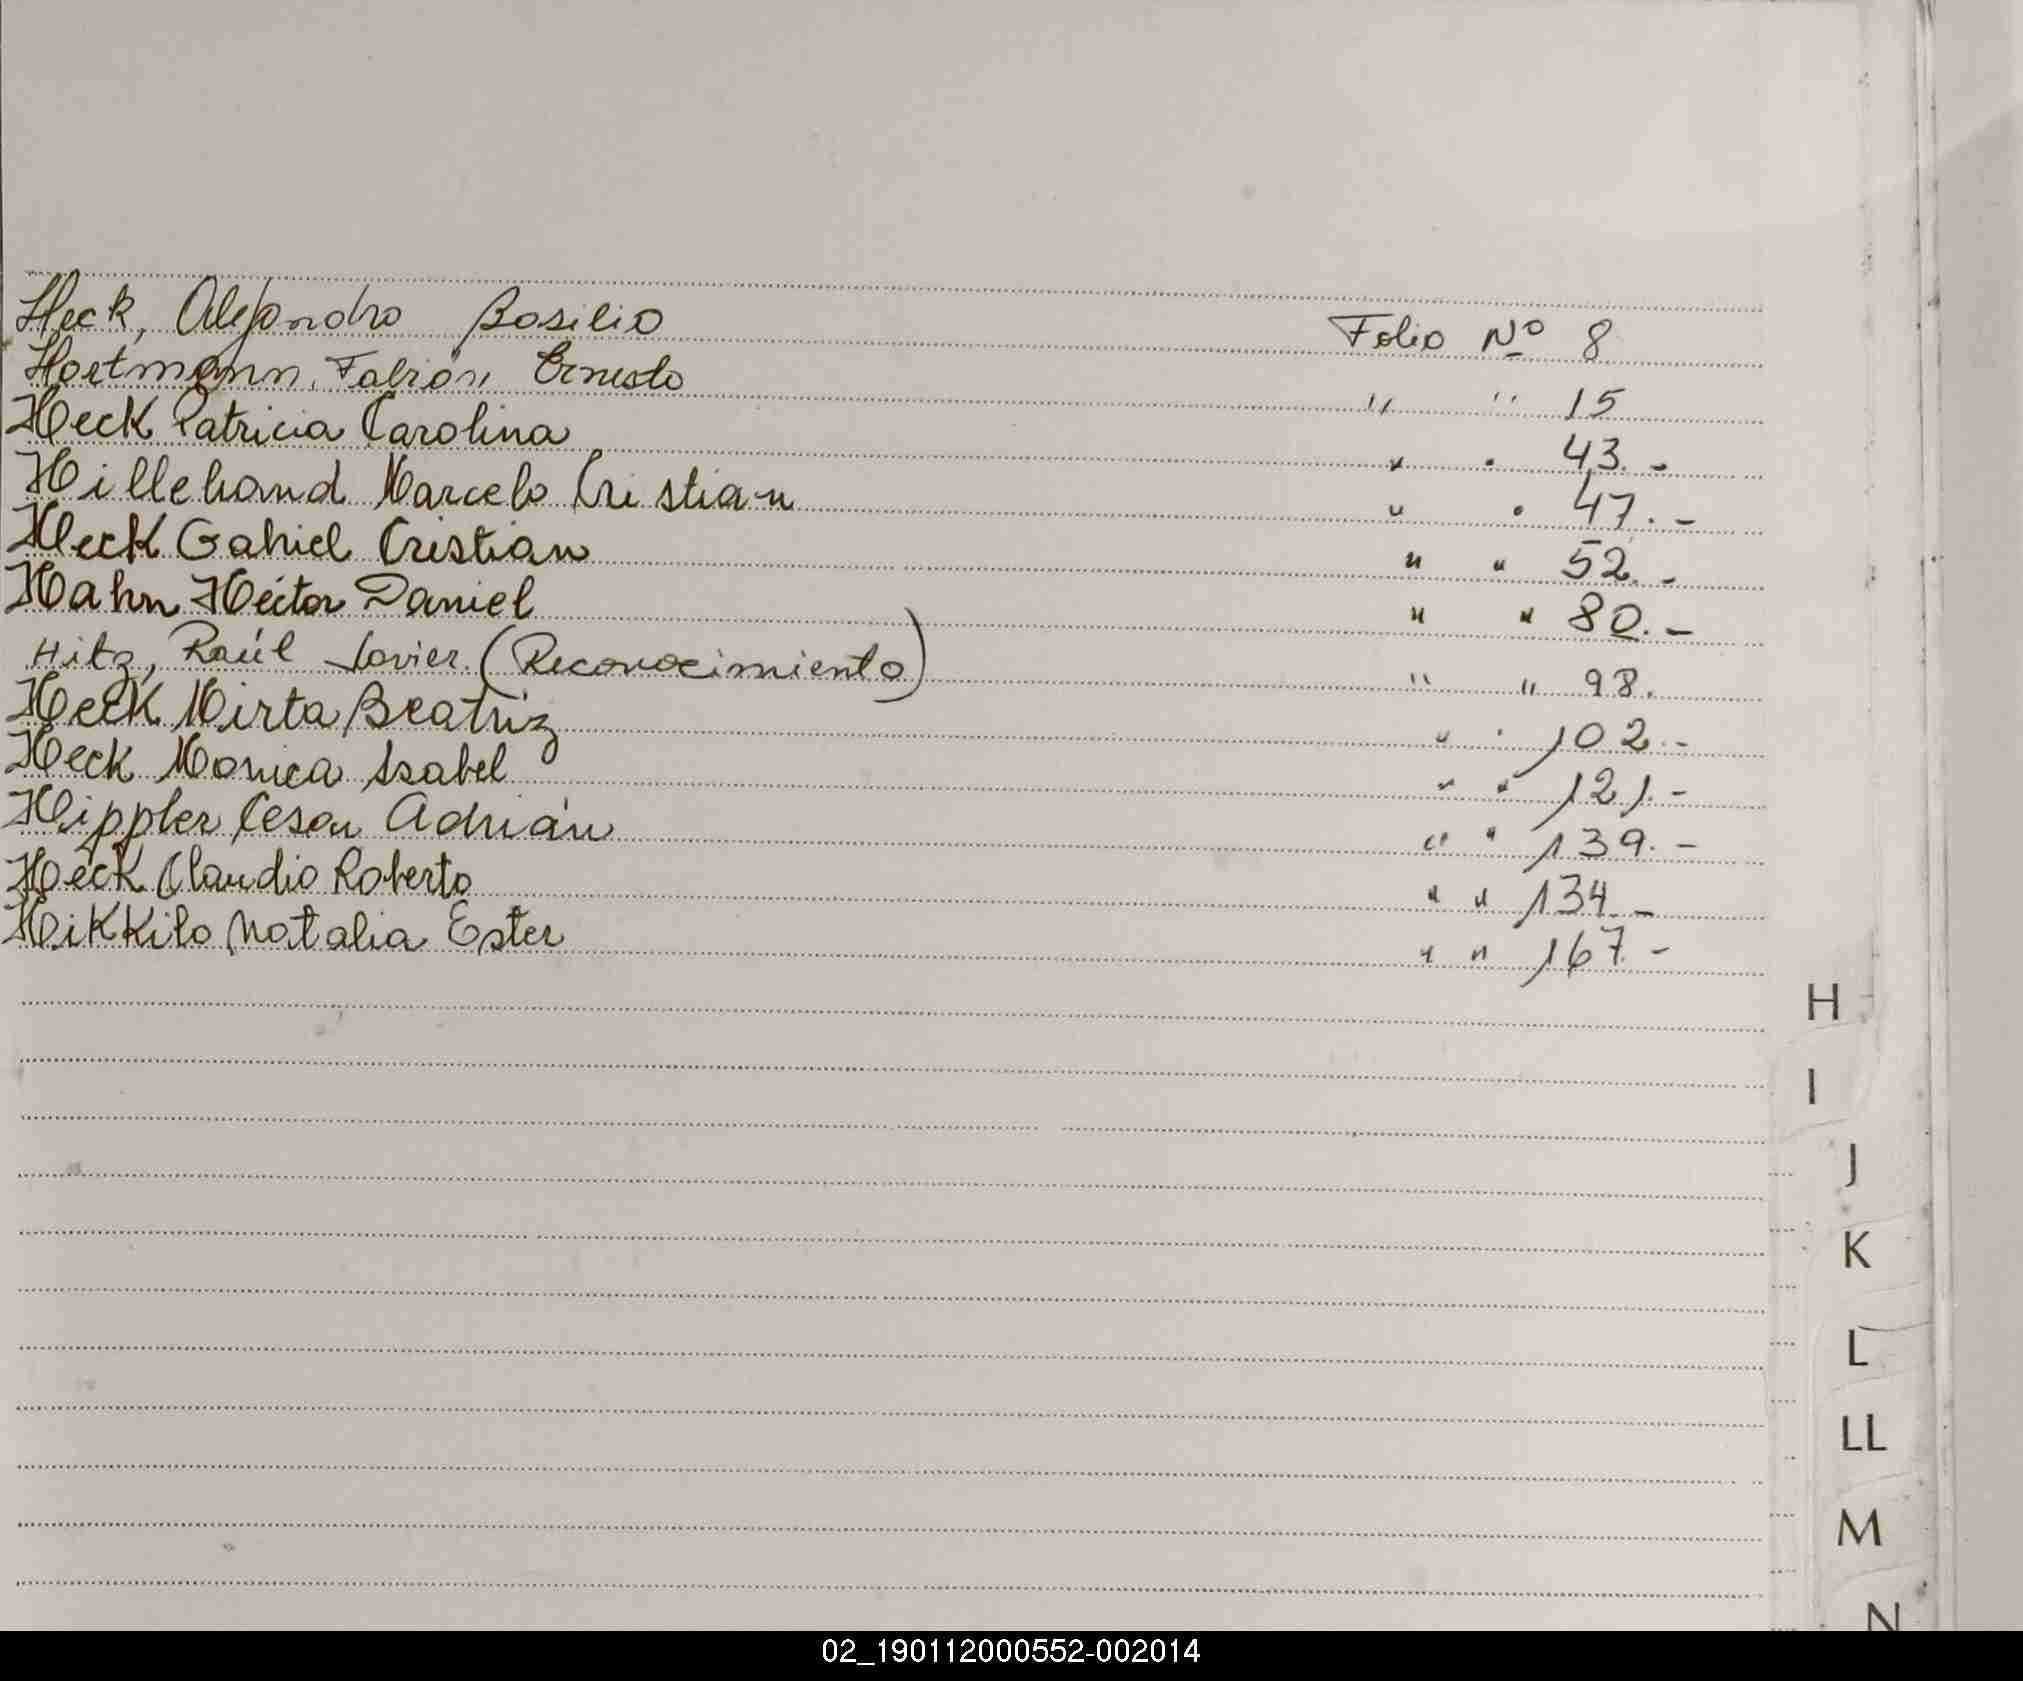 Heck, Alejandro Basilio Folio Nº 8
Hartmann, Fabián Ernesto " " 15
Heck Patricia Carolina " " 43.-
Hillebrand Marcelo Cristian " " 47.-
Heck Gabriel Cristian " " 52.-
Hahn Héctor Daniel " " 80.-
Hitz, Raúl Javier (Reconocimiento) " " 98.
Heck Mirta Beatriz " " 102.-
Heck Monica Isabel " " 121.-
Hippler Cesar Adrián " " 139.-
Heck Claudio Roberto " " 134.-
Hikkilo Natalia Ester " " 167.-
H
I
J
K
L
LL
M
N
02_190112000552-002014